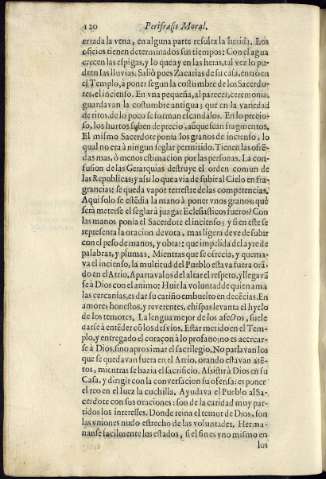 120 Perifrasis Moral.
errada la vena, en alguna parte resulta la herida. Los
oficios tienen determinados sus tiempos: Con el agua
crecen las espigas, y lo que ay en las heras, tal vez lo pu-
dren las lluvias. Saliò pues Zacarias de su casa, entrò en
el Templo, à poner segun la costumbre de los Sacerdo-
tes, el incienso. En vna pequeña, al parecer, ceremonia,
guardavan la costumbre antigua; que en la variedad
de ritos, de lo poco se forman escandalos. En lo precio-
so, los hurtos suben de precio, aunque sean fragmentos.
El mismo Sacerdote ponia los granos de incienso, lo
qual no era à ningun seglar permitido. Tienen las ofrē-
das mas, ò menos estimacion por las personas. La con-
fusion de las Gerarquias destruye el orden comun de
las Republicas; y assi lo que avia de subir al Cielo en fra-
grancias; se queda vapor terrestre de las competencias.
Aqui solo se estēdia la mano à poner vnos granos: què
serà meterse el seglar à juzgar Eclesiasticos fueros? Con
las manos ponia el Sacerdote el incienso; y si en este se
representa la oracion devota, mas ligera deve de subir
con el peso de manos, y obra: que impelida del ayre de
palabras, y plumas. Mientras que se ofrecia, y quema-
va el incienso, la multitud del Pueblo estava fuera orā-
do en el Atrio. Apartavalos del altar el respeto, y llegarā
se à Dios con el animo: Huir la voluntad de quien ama
las cercanias, es dar su cariño embuelto en decēcias. En
amores honestos, y reverentes, chispas levanta el yelo
de los temores. La lengua mejor de los afectos, suele
darse à entēder cō los desvios. Estar metido en el Tem-
plo, y entregado el coraçon à lo profano; no es acercar-
se à Dios, sino aproximar el sacrilegio. No parlavan los
que se quedavan fuera en el Atrio, orando estavan atē-
tos, mientras se hazia el sacrificio. Assistir à Dios en su
Casa, y dirigir con la conversacion su ofensa: es poner
el reo en el Iuez la cuchilla. Ayudava el Pueblo al Sa-
cerdote con sus oraciones: son de la caridad muy par-
tidos los interesses. Donde reina el temor de Dios, son
las vniones ñudo estrecho de las voluntades. Herma-
nanse facilmente los estados, si el fin es vno mismo en
los